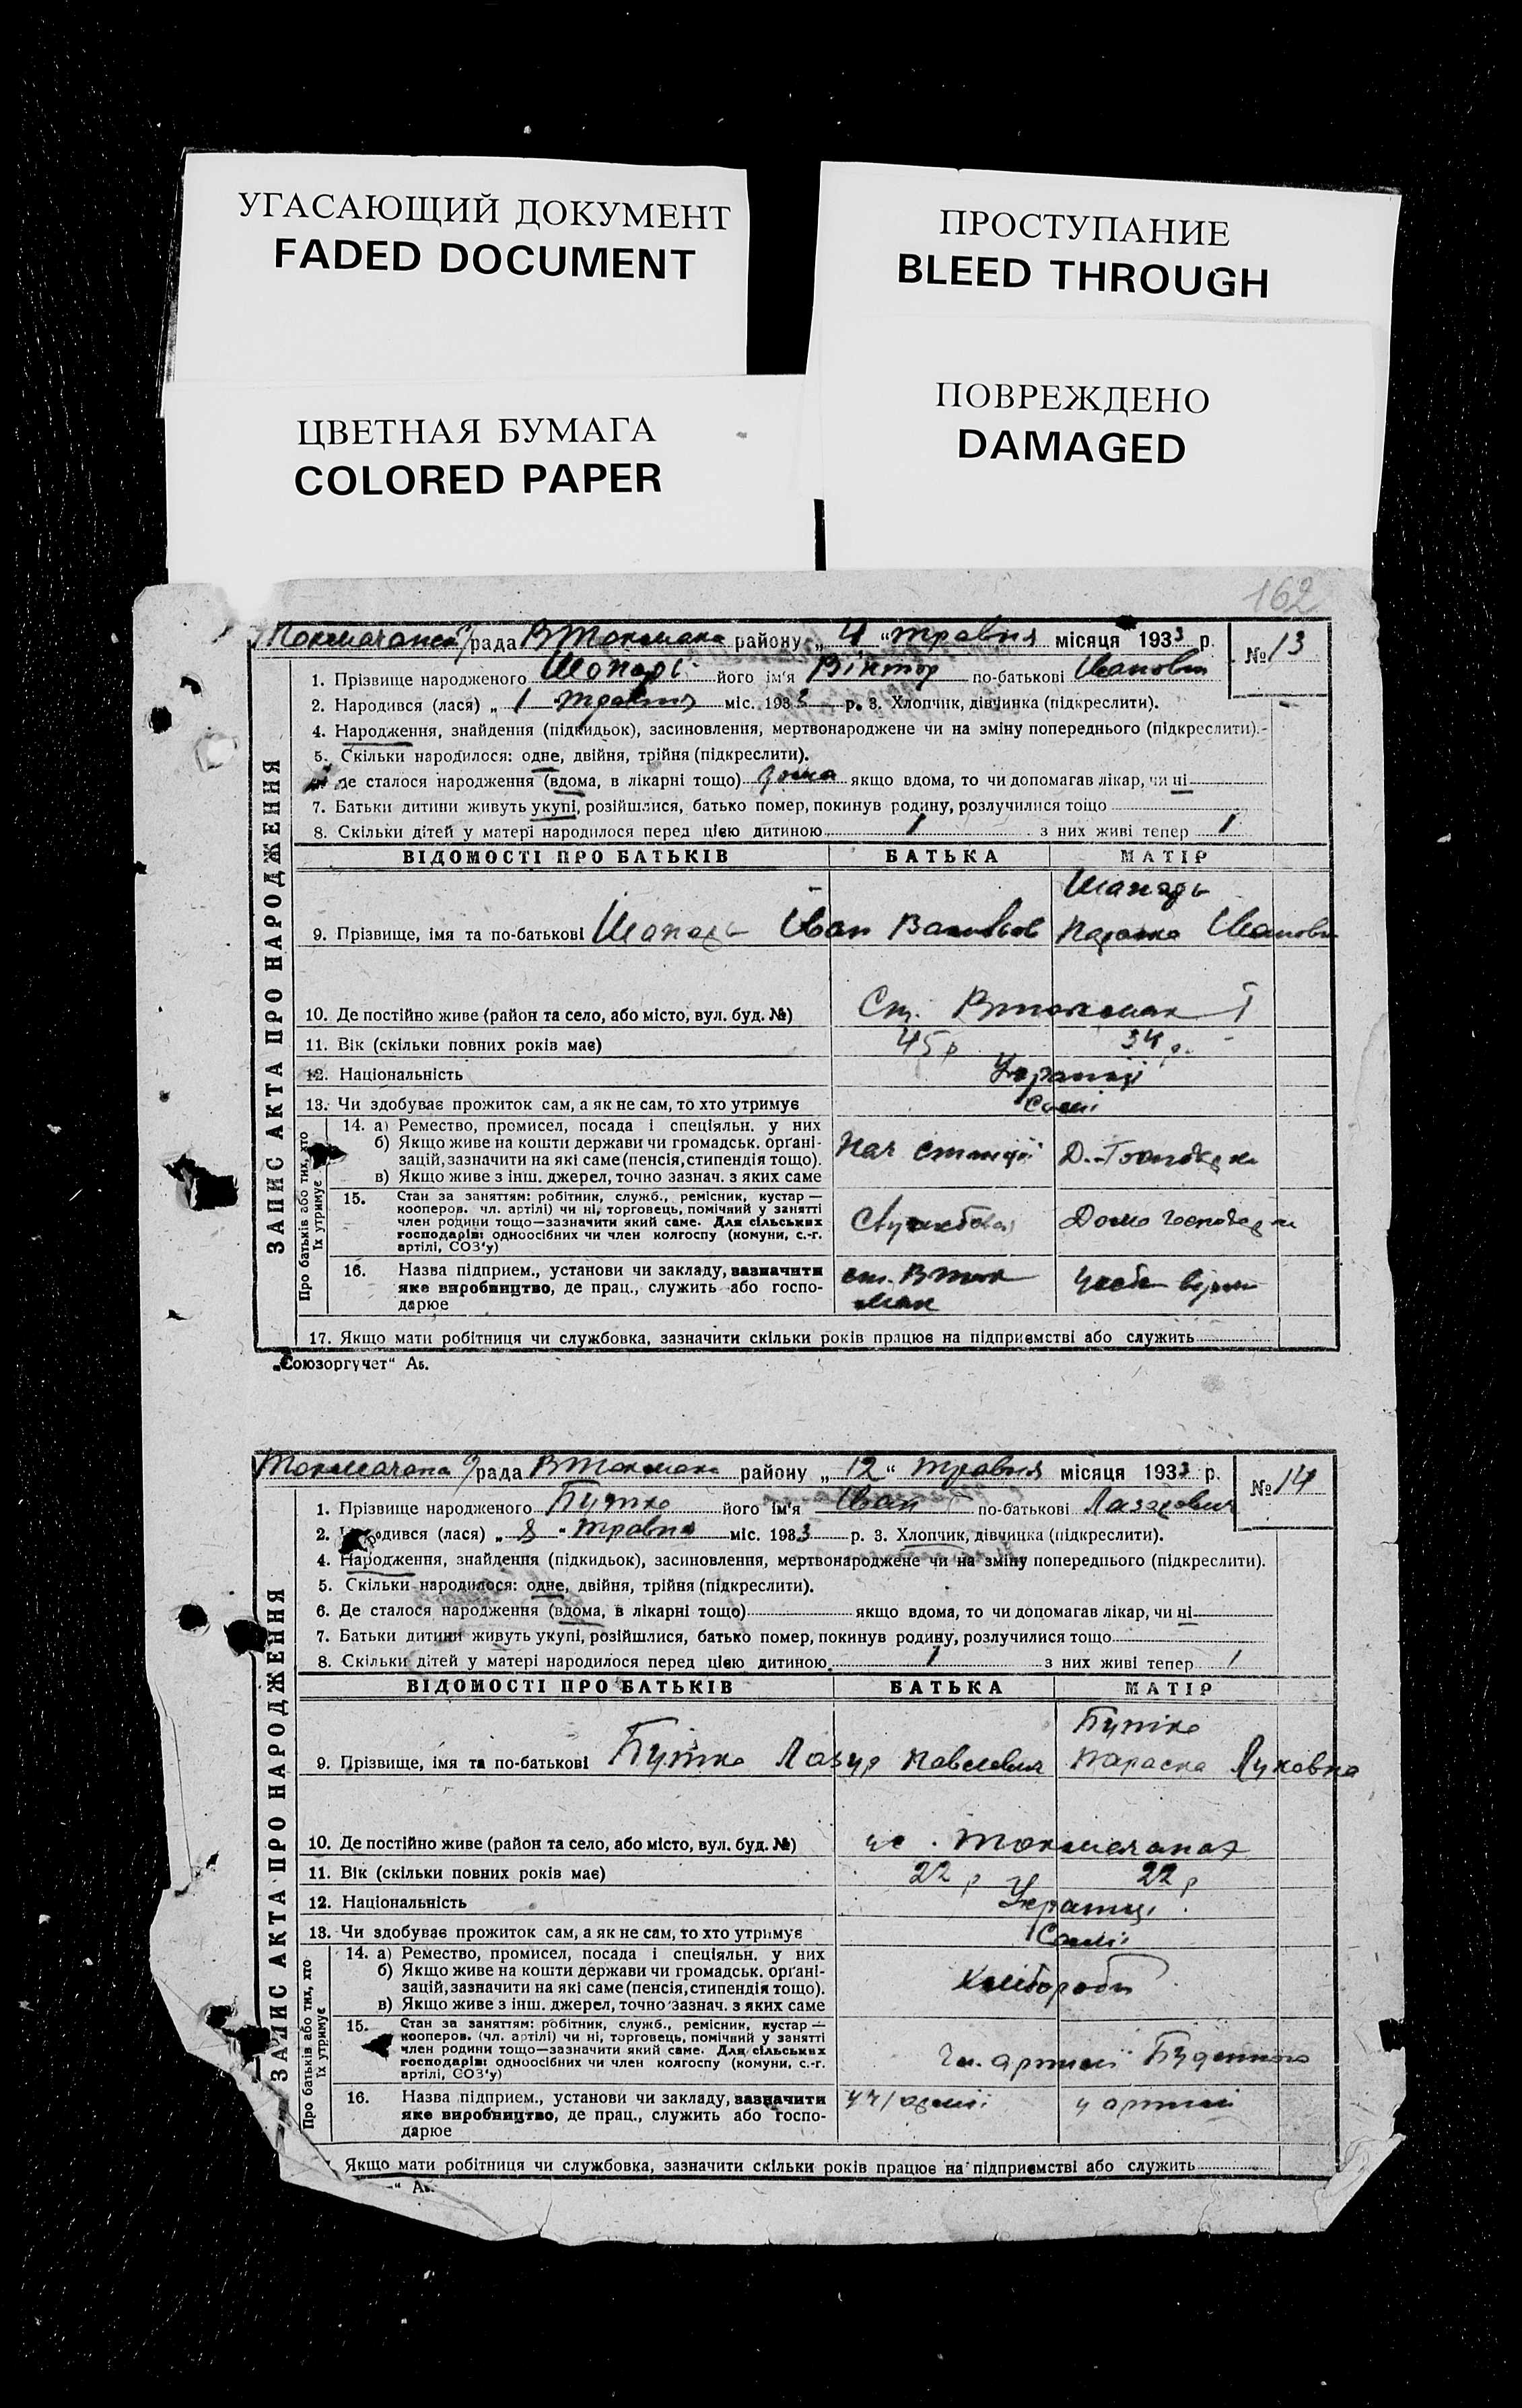 УГАСАЮЩИЙ ДОКУМЕНТ
FADED DOCUMENT
ПРОСТУПАНИЕ
BLEED THROUGH
ЦВЕТНАЯ БУМАГА
COLORED PAPER
ПОВРЕЖДЕНО
DAMAGED
162
ЗАПИС АКТА ПРО НАРОДЖЕННЯ
рада ВТокмака району „ 4 “ травня місяця 1933 р. № 13
1. Прізвище народженого його ім'я Віктор по-батькові Іванович
2. Народився (лася) „ 1 травня міс. 1933 р. 3. Хлопчик, дівчинка (підкреслити).
4. Народження, знайдення (підкидьок), засиновлення, мертвонароджене чи на зміну попереднього (підкреслити).
5. Скільки народилося: одне, двійня, трійня (підкреслити).
де сталося народження (вдома, в лікарні тощо) дома якщо вдома, то чи допомагав лікар, чи ні
7. Батьки дитини живуть укупі, розійшлися, батько помер, покинув родину, розлучилися тощо
8. Скільки дітей у матері народилося перед цією дитиною 1 з них живі тепер 1
ВІДОМОСТІ ПРО БАТЬКІВ БАТЬКА МАТІР
9. Прізвище, імя та по-батькові Іван
10. Де постійно живе (район та село, або місто, вул. буд. №) Ст. Втокмак I
11. Вік (скільки повних років має) 45 р 34 р.
12. Національність Українці
13. Чи здобуває прожиток сам, а як не сам, то хто утримує Самі
Про батьків або тих, хто їх утримує
14. а) Ремество, промисел, посада і спеціяльн. у них
б) Якщо живе на кошти держави чи громадськ. органі-
зацій, зазначити на які саме (пенсія, стипендія тощо).
в) Якщо живе з інш. джерел, точно зазнач. з яких саме
Нач станції
15. Стан за заняттям: робітник, служб., ремісник, кустар —
кооперов. чл. артілі) чи ні, торговець, помічний у занятті
член родини тощо—зазначити який саме. Для сільських
господарів: одноосібних чи член колгоспу (комуни, с.-г.
артілі, СОЗ'у)
16. Назва підприєм., установи чи закладу, зазначити
яке виробництво, де прац., служить або госпо-
дарює
ст. Вток
мак
17. Якщо мати робітниця чи службовка, зазначити скільки років працює на підприємстві або служить
„Союзоргучет“ Ав.
ЗАПИС АКТА ПРО НАРОДЖЕННЯ
рада ВТокмака району „ 12 “ травня місяця 1933 р. № 14
1. Прізвище народженого Бутко його ім'я Іван по-батькові Лазарович
2. Народився (лася) „ 8 травня міс. 1933 р. 3. Хлопчик, дівчинка (підкреслити).
4. Народження, знайдення (підкидьок), засиновлення, мертвонароджене чи на зміну попереднього (підкреслити).
5. Скільки народилося: одне, двійня, трійня (підкреслити).
6. Де сталося народження (вдома, в лікарні тощо) якщо вдома, то чи допомагав лікар, чи ні
7. Батьки дитини живуть укупі, розійшлися, батько помер, покинув родину, розлучилися тощо
8. Скільки дітей у матері народилося перед цією дитиною 1 з них живі тепер 1
ВІДОМОСТІ ПРО БАТЬКІВ БАТЬКА МАТІР
Бутко
9. Прізвище, імя та по-батькові Бутко Лазар Павлович Параска Луковна
10. Де постійно живе (район та село, або місто, вул. буд. №)
11. Вік (скільки повних років має) 22 р 22 р
12. Національність Українці
13. Чи здобуває прожиток сам, а як не сам, то хто утримує Самі
Про батьків або тих, хто їх утримує
14. а) Ремество, промисел, посада і спеціяльн. у них
б) Якщо живе на кошти держави чи громадськ. органі-
зацій, зазначити на які саме (пенсія, стипендія тощо).
в) Якщо живе з інш. джерел, точно зазнач. з яких саме
Хлібороби
15. Стан за заняттям: робітник, служб., ремісник, кустар —
кооперов. (чл. артілі) чи ні, торговець, помічний у занятті
член родини тощо—зазначити який саме. Для сільських
господарів: одноосібних чи член колгоспу (комуни, с.-г.
артілі, СОЗ'у)
Чл. артілі Буденного
16. Назва підприєм., установи чи закладу, зазначити
яке виробництво, де прац., служить або госпо-
дарює
у артілі
Якщо мати робітниця чи службовка, зазначити скільки років працює на підприємстві або служить
“ Ав.